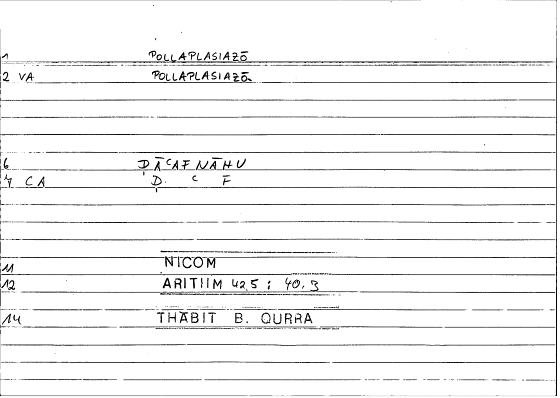 1 POLLAPLASIAZŌ
2 VA POLLAPLASIAZŌ
6 ḌĀᶜAFNĀHU
7 CA Ḍ. ᶜ F
11 NICOM
12 ARITIIM 42,5 ; 40.3
14 THĀBIT B. QURRA